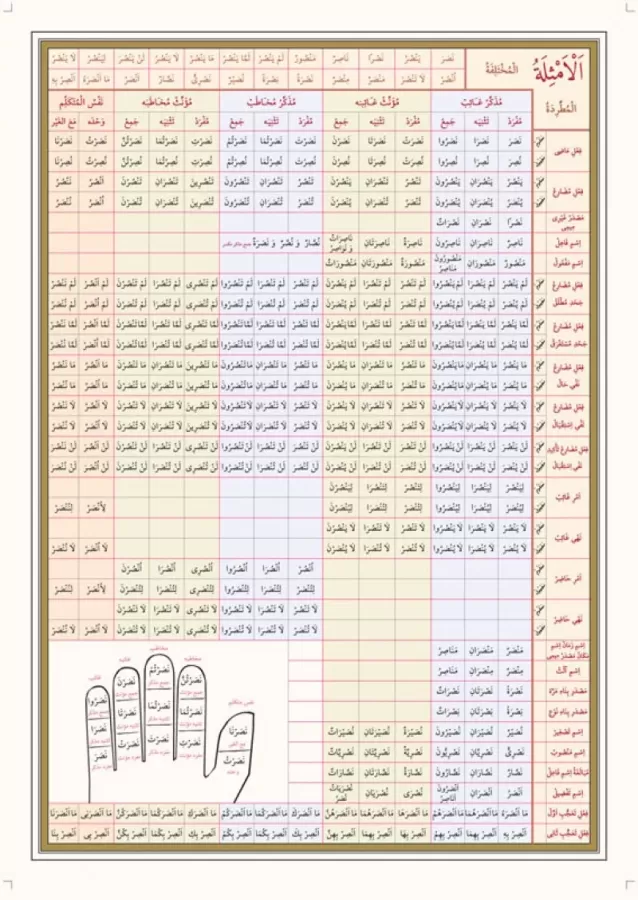 اَلْاَمْثِلَةُ
اَلْمُخْتَلِفَةُ
اَلْمُطَّرِدَةُ
نَصَرَ يَنْصُرُ نَصْرًا نَاصِرٌ مَنْصُورٌ لَمْ يَنْصُرْ لَمَّا يَنْصُرْ مَا يَنْصُرُ لَا يَنْصُرُ لَنْ يَنْصُرَ لِيَنْصُرْ لَا يَنْصُرْ
اُنْصُرْ لَا تَنْصُرْ مَنْصَرٌ مِنْصَرٌ نَصْرَةٌ نِصْرَةٌ نُصَيْرٌ نَصْرِيٌّ نَصَّارٌ اَنْصَرُ مَا اَنْصَرَهُ اَنْصِرْ بِهِ
مُذَكَّرْ غَائِبْ مُؤَنَّثْ غَائِبَه مُذَكَّرْ مُخَاطَبْ مُؤَنَّثْ مُخَاطَبَه نَفْسُ الْمُتَكَلِّمِ
مُفْرَدْ تَثْنِيَه جَمِعْ مُفْرَدَه تَثْنِيَه جَمِعْ مُفْرَدْ تَثْنِيَه جَمِعْ مُفْرَدَه تَثْنِيَه جَمِعْ وَحْدَه مَعَ الْغَيْرِ
فِعْلِ مَاضِى
نَصَرَ نَصَرَا نَصَرُوا نَصَرَتْ نَصَرَتَا نَصَرْنَ نَصَرْتَ نَصَرْتُمَا نَصَرْتُمْ نَصَرْتِ نَصَرْتُمَا نَصَرْتُنَّ نَصَرْتُ نَصَرْنَا
نُصِرَ نُصِرَا نُصِرُوا نُصِرَتْ نُصِرَتَا نُصِرْنَ نُصِرْتَ نُصِرْتُمَا نُصِرْتُمْ نُصِرْتِ نُصِرْتُمَا نُصِرْتُنَّ نُصِرْتُ نُصِرْنَا
فِعْلِ مُضَارِعْ
يَنْصُرُ يَنْصُرَانِ يَنْصُرُونَ تَنْصُرُ تَنْصُرَانِ يَنْصُرْنَ تَنْصُرُ تَنْصُرَانِ تَنْصُرُونَ تَنْصُرِينَ تَنْصُرَانِ تَنْصُرْنَ اَنْصُرُ نَنْصُرُ
يُنْصَرُ يُنْصَرَانِ يُنْصَرُونَ تُنْصَرُ تُنْصَرَانِ يُنْصَرْنَ تُنْصَرُ تُنْصَرَانِ تُنْصَرُونَ تُنْصَرِينَ تُنْصَرَانِ تُنْصَرْنَ اُنْصَرُ نُنْصَرُ
نَصْرًا نَصْرَانِ نَصْرَاتٌ
اِسْمِ فَاعِلْ نَاصِرٌ نَاصِرَانِ نَاصِرُونَ نَاصِرَةٌ نَاصِرَتَانِ نَاصِرَاتٌ وَ نَوَاصِرُ نُصَّارٌ وَ نُصَّرٌ وَ نَصَرَةٌ
اِسْمِ مَفْعُولْ مَنْصُورٌ مَنْصُورَانِ مَنْصُورُونَ مَنَاصِرُ مَنْصُورَةٌ مَنْصُورَتَانِ مَنْصُورَاتٌ
فِعْلِ مُضَارِعْ جَحْدِ مُطْلَقْ
لَمْ يَنْصُرْ لَمْ يَنْصُرَا لَمْ يَنْصُرُوا لَمْ تَنْصُرْ لَمْ تَنْصُرَا لَمْ يَنْصُرْنَ لَمْ تَنْصُرْ لَمْ تَنْصُرَا لَمْ تَنْصُرُوا لَمْ تَنْصُرِى لَمْ تَنْصُرَا لَمْ تَنْصُرْنَ لَمْ اَنْصُرْ لَمْ نَنْصُرْ
لَمْ يُنْصَرْ لَمْ يُنْصَرَا لَمْ يُنْصَرُوا لَمْ تُنْصَرْ لَمْ تُنْصَرَا لَمْ يُنْصَرْنَ لَمْ تُنْصَرْ لَمْ تُنْصَرَا لَمْ تُنْصَرُوا لَمْ تُنْصَرِى لَمْ تُنْصَرَا لَمْ تُنْصَرْنَ لَمْ اُنْصَرْ لَمْ نُنْصَرْ
فِعْلِ مُضَارِعْ جَحْدِ مُسْتَغْرَقْ
لَمَّا يَنْصُرْ لَمَّا يَنْصُرَا لَمَّا يَنْصُرُوا لَمَّا تَنْصُرْ لَمَّا تَنْصُرَا لَمَّا يَنْصُرْنَ لَمَّا تَنْصُرْ لَمَّا تَنْصُرَا لَمَّا تَنْصُرُوا لَمَّا تَنْصُرِى لَمَّا تَنْصُرَا لَمَّا تَنْصُرْنَ لَمَّا اَنْصُرْ لَمَّا نَنْصُرْ
لَمَّا يُنْصَرْ لَمَّا يُنْصَرَا لَمَّا يُنْصَرُوا لَمَّا تُنْصَرْ لَمَّا تُنْصَرَا لَمَّا يُنْصَرْنَ لَمَّا تُنْصَرْ لَمَّا تُنْصَرَا لَمَّا تُنْصَرُوا لَمَّا تُنْصَرِى لَمَّا تُنْصَرَا لَمَّا تُنْصَرْنَ لَمَّا اُنْصَرْ لَمَّا نُنْصَرْ
فِعْلِ مُضَارِعْ نَفْىِ حَالْ
مَا يَنْصُرُ مَا يَنْصُرَانِ مَا يَنْصُرُونَ مَا تَنْصُرُ مَا تَنْصُرَانِ مَا يَنْصُرْنَ مَا تَنْصُرُ مَا تَنْصُرَانِ مَا تَنْصُرُونَ مَا تَنْصُرِينَ مَا تَنْصُرَانِ مَا تَنْصُرْنَ مَا اَنْصُرُ مَا نَنْصُرُ
مَا يُنْصَرُ مَا يُنْصَرَانِ مَا يُنْصَرُونَ مَا تُنْصَرُ مَا تُنْصَرَانِ مَا يُنْصَرْنَ مَا تُنْصَرُ مَا تُنْصَرَانِ مَا تُنْصَرُونَ مَا تُنْصَرِينَ مَا تُنْصَرَانِ مَا تُنْصَرْنَ مَا اُنْصَرُ مَا نُنْصَرُ
فِعْلِ مُضَارِعْ نَفْىِ اِسْتِقْبَالْ
لَا يَنْصُرُ لَا يَنْصُرَانِ لَا يَنْصُرُونَ لَا تَنْصُرُ لَا تَنْصُرَانِ لَا يَنْصُرْنَ لَا تَنْصُرُ لَا تَنْصُرَانِ لَا تَنْصُرُونَ لَا تَنْصُرِينَ لَا تَنْصُرَانِ لَا تَنْصُرْنَ لَا اَنْصُرُ لَا نَنْصُرُ
لَا يُنْصَرُ لَا يُنْصَرَانِ لَا يُنْصَرُونَ لَا تُنْصَرُ لَا تُنْصَرَانِ لَا يُنْصَرْنَ لَا تُنْصَرُ لَا تُنْصَرَانِ لَا تُنْصَرُونَ لَا تُنْصَرِينَ لَا تُنْصَرَانِ لَا تُنْصَرْنَ لَا اُنْصَرُ لَا نُنْصَرُ
فِعْلِ مُضَارِعْ تَأْكِيدِ نَفْىِ اِسْتِقْبَالْ
لَنْ يَنْصُرَ لَنْ يَنْصُرَا لَنْ يَنْصُرُوا لَنْ تَنْصُرَ لَنْ تَنْصُرَا لَنْ يَنْصُرْنَ لَنْ تَنْصُرَ لَنْ تَنْصُرَا لَنْ تَنْصُرُوا لَنْ تَنْصُرِى لَنْ تَنْصُرَا لَنْ تَنْصُرْنَ لَنْ اَنْصُرَ لَنْ نَنْصُرَ
لَنْ يُنْصَرَ لَنْ يُنْصَرَا لَنْ يُنْصَرُوا لَنْ تُنْصَرَ لَنْ تُنْصَرَا لَنْ يُنْصَرْنَ لَنْ تُنْصَرَ لَنْ تُنْصَرَا لَنْ تُنْصَرُوا لَنْ تُنْصَرِى لَنْ تُنْصَرَا لَنْ تُنْصَرْنَ لَنْ اُنْصَرَ لَنْ نُنْصَرَ
اَمْرِ غَائِبْ
لِيَنْصُرْ لِيَنْصُرَا لِيَنْصُرُوا لِتَنْصُرْ لِتَنْصُرَا لِيَنْصُرْنَ
لِيُنْصَرْ لِيُنْصَرَا لِيُنْصَرُوا لِتُنْصَرْ لِتُنْصَرَا لِيُنْصَرْنَ لِاُنْصَرْ لِنُنْصَرْ
نَهْىِ غَائِبْ
لَا يَنْصُرْ لَا يَنْصُرَا لَا يَنْصُرُوا لَا تَنْصُرْ لَا تَنْصُرَا لَا يَنْصُرْنَ
لَا يُنْصَرْ لَا يُنْصَرَا لَا يُنْصَرُوا لَا تُنْصَرْ لَا تُنْصَرَا لَا يُنْصَرْنَ لَا اُنْصَرْ لَا نُنْصَرْ
اَمْرِ حَاضِرْ
اُنْصُرْ اُنْصُرَا اُنْصُرُوا اُنْصُرِى اُنْصُرَا اُنْصُرْنَ
لِتُنْصَرْ لِتُنْصَرَا لِتُنْصَرُوا لِتُنْصَرِى لِتُنْصَرَا لِتُنْصَرْنَ لِاُنْصَرْ لِنُنْصَرْ
نَهْىِ حَاضِرْ
لَا تَنْصُرْ لَا تَنْصُرَا لَا تَنْصُرُوا لَا تَنْصُرِى لَا تَنْصُرَا لَا تَنْصُرْنَ
لَا تُنْصَرْ لَا تُنْصَرَا لَا تُنْصَرُوا لَا تُنْصَرِى لَا تُنْصَرَا لَا تُنْصَرْنَ لَا اُنْصَرْ لَا نُنْصَرْ
اِسْمِ زَمَانْ اِسْمِ مَكَانْ مَصْدَرْ مِيمِى مَنْصَرٌ مَنْصَرَانِ مَنَاصِرُ
اِسْمِ آلَتْ مِنْصَرٌ مِنْصَرَانِ مَنَاصِرُ
مَصْدَرْ بِنَاءِ مَرَّه نَصْرَةٌ نَصْرَتَانِ نَصْرَاتٌ
مَصْدَرْ بِنَاءِ نَوْعْ نِصْرَةٌ نِصْرَتَانِ نِصْرَاتٌ
اِسْمِ تَصْغِيرْ نُصَيْرٌ نُصَيْرَانِ نُصَيْرُونَ نُصَيْرَةٌ نُصَيْرَتَانِ نُصَيْرَاتٌ
اِسْمِ مَنْسُوبْ نَصْرِيٌّ نَصْرِيَّانِ نَصْرِيُّونَ نَصْرِيَّةٌ نَصْرِيَّتَانِ نَصْرِيَّاتٌ
مُبَالَغَه اِسْمِ فَاعِلْ نَصَّارٌ نَصَّارَانِ نَصَّارُونَ نَصَّارَةٌ نَصَّارَتَانِ نَصَّارَاتٌ
اِسْمِ تَفْضِيلْ اَنْصَرُ اَنْصَرَانِ اَنْصَرُونَ اَنَاصِرُ نُصْرَى نُصْرَيَانِ نُصْرَيَاتٌ
فِعْلِ تَعَجُّبِ اَوَّلْ مَا اَنْصَرَهُ مَا اَنْصَرَهُمَا مَا اَنْصَرَهُمْ مَا اَنْصَرَهَا مَا اَنْصَرَهُمَا مَا اَنْصَرَهُنَّ مَا اَنْصَرَكَ مَا اَنْصَرَكُمَا مَا اَنْصَرَكُمْ مَا اَنْصَرَكِ مَا اَنْصَرَكُمَا مَا اَنْصَرَكُنَّ مَا اَنْصَرَنِى مَا اَنْصَرَنَا
فِعْلِ تَعَجُّبِ ثَانِى اَنْصِرْ بِهِ اَنْصِرْ بِهِمَا اَنْصِرْ بِهِمْ اَنْصِرْ بِهَا اَنْصِرْ بِهِمَا اَنْصِرْ بِهِنَّ اَنْصِرْ بِكَ اَنْصِرْ بِكُمَا اَنْصِرْ بِكُمْ اَنْصِرْ بِكِ اَنْصِرْ بِكُمَا اَنْصِرْ بِكُنَّ اَنْصِرْ بِى اَنْصِرْ بِنَا
نَصَرْنَا
نَصَرْتُ
مخاطبه
نَصَرْتُنَّ
نَصَرْتُمَا
نَصَرْتِ
مخاطب
نَصَرْتُمْ
نَصَرْتُمَا
نَصَرْتَ
غائبه
نَصَرْنَ
نَصَرَتَا
نَصَرَتْ
غائب
نَصَرُوا
نَصَرَا
نَصَرَ